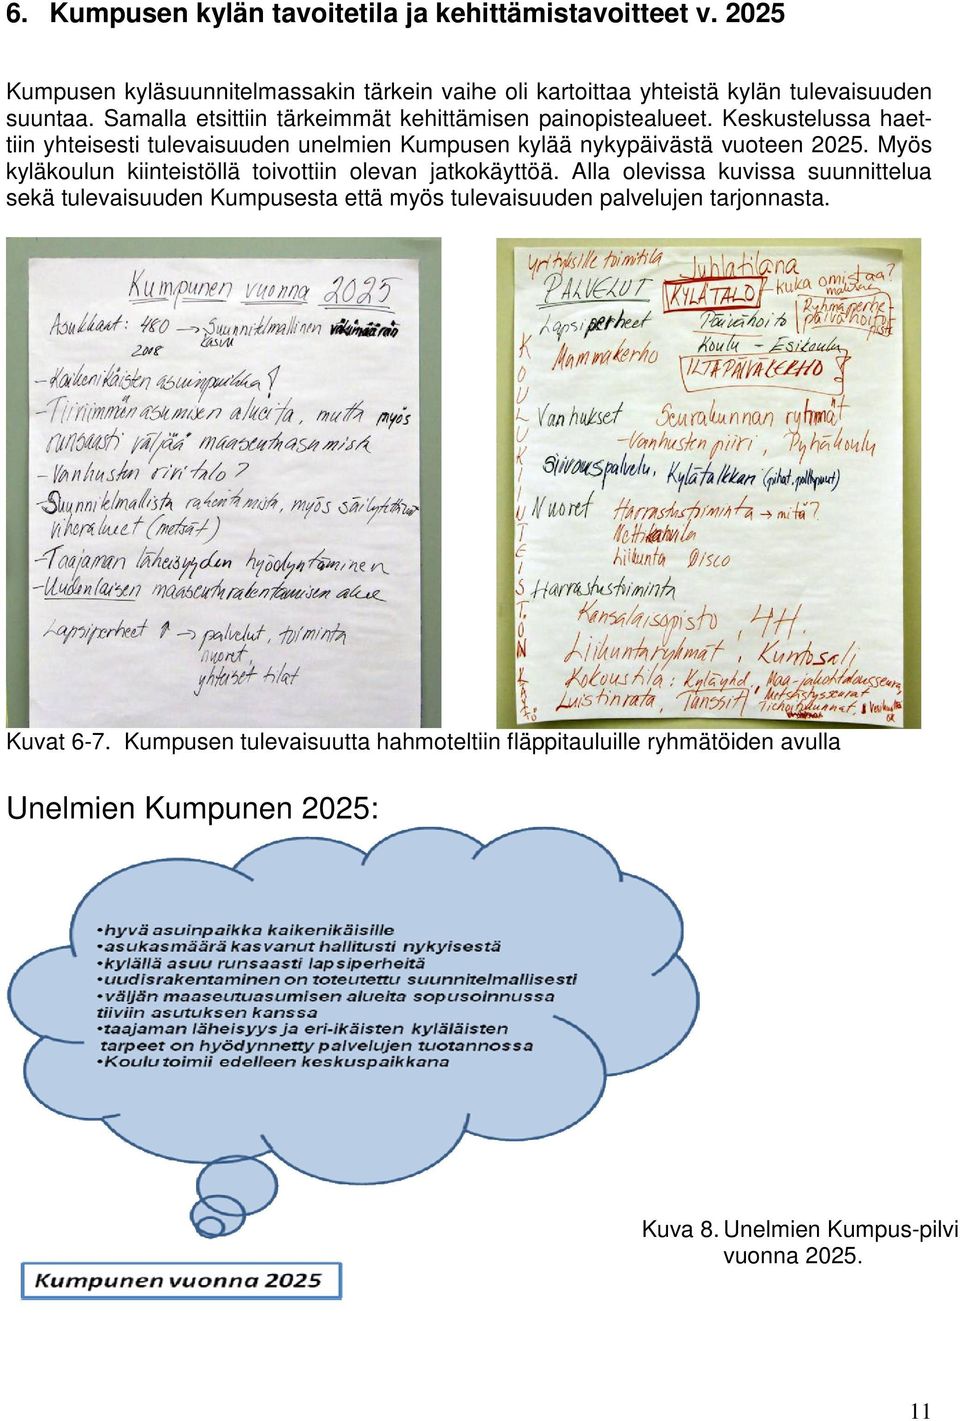 6. Kumpusen kylän tavoitetila ja kehittämistavoitteet v. 2025
Kumpusen kyläsuunnitelmassakin tärkein vaihe oli kartoittaa yhteistä kylän tulevaisuuden
suuntaa. Samalla etsittiin tärkeimmät kehittämisen painopistealueet. Keskustelussa haet-
tiin yhteisesti tulevaisuuden unelmien Kumpusen kylää nykypäivästä vuoteen 2025. Myös
kyläkoulun kiinteistöllä toivottiin olevan jatkokäyttöä. Alla olevissa kuvissa suunnittelua
sekä tulevaisuuden Kumpusesta että myös tulevaisuuden palvelujen tarjonnasta.
Kumpunen vuonna 2025
Asukkaat: 480 → Suunnitelmallinen väkimäärän
2008 kasvu
- Kaikenikäisten asuinpaikka!
- Tiiviimmän asumisen alueita, mutta myös
runsaasti väljää maaseutuasumista
- Vanhusten rivitalo?
- Suunnitelmallista rakentamista, myös säilytettävät
viheralueet (metsät)
- Taajaman läheisyyden hyödyntäminen
- Uudenlaisen maaseuturakentamisen alue
Lapsiperheet ↑ → palvelut, toiminta
nuoret,
yhteiset tilat
Yrityksille toimitila Juhlatilana
PALVELUT KYLÄTALO - kuka omistaa?
Ryhmäperhe-
päivähoito
Lapsiperheet Päivähoito
Koulu - Esikoulu
Mammakerho ILTAPÄIVÄKERHO
KOULUKIINTEIST.ON KÄYTTÖ
Vanhukset Seurakunnan ryhmät
- Vanhusten piiri, Pyhäkoulu
Siivouspalvelu, Kylätalkkari (pihat, polttopuut)
Nuoret Harrastustoiminta → mitä?
Nettikahvila
Liikunta Disco
Harrastustoiminta
Kansalaisopisto, 4H.
Liikuntaryhmät, Kuntosali
Kokoustila: Kyläyhd, Maa-jakohtalousseura,
Metsästysseurat
Luistinrata, Tanssit Tiehoitokunnat,
Kuvat 6-7. Kumpusen tulevaisuutta hahmoteltiin fläppitauluille ryhmätöiden avulla
Unelmien Kumpunen 2025:
•hyvä asuinpaikka kaikenikäisille
•asukasmäärä kasvanut hallitusti nykyisestä
•kylällä asuu runsaasti lapsiperheitä
•uudisrakentaminen on toteutettu suunnitelmallisesti
•väljän maaseutuasumisen alueita sopusoinnussa
tiiviin asutuksen kanssa
•taajaman läheisyys ja eri-ikäisten kyläläisten
tarpeet on hyödynnetty palvelujen tuotannossa
•Koulu toimii edelleen keskuspaikkana
Kumpunen vuonna 2025
Kuva 8. Unelmien Kumpus-pilvi
vuonna 2025.
11